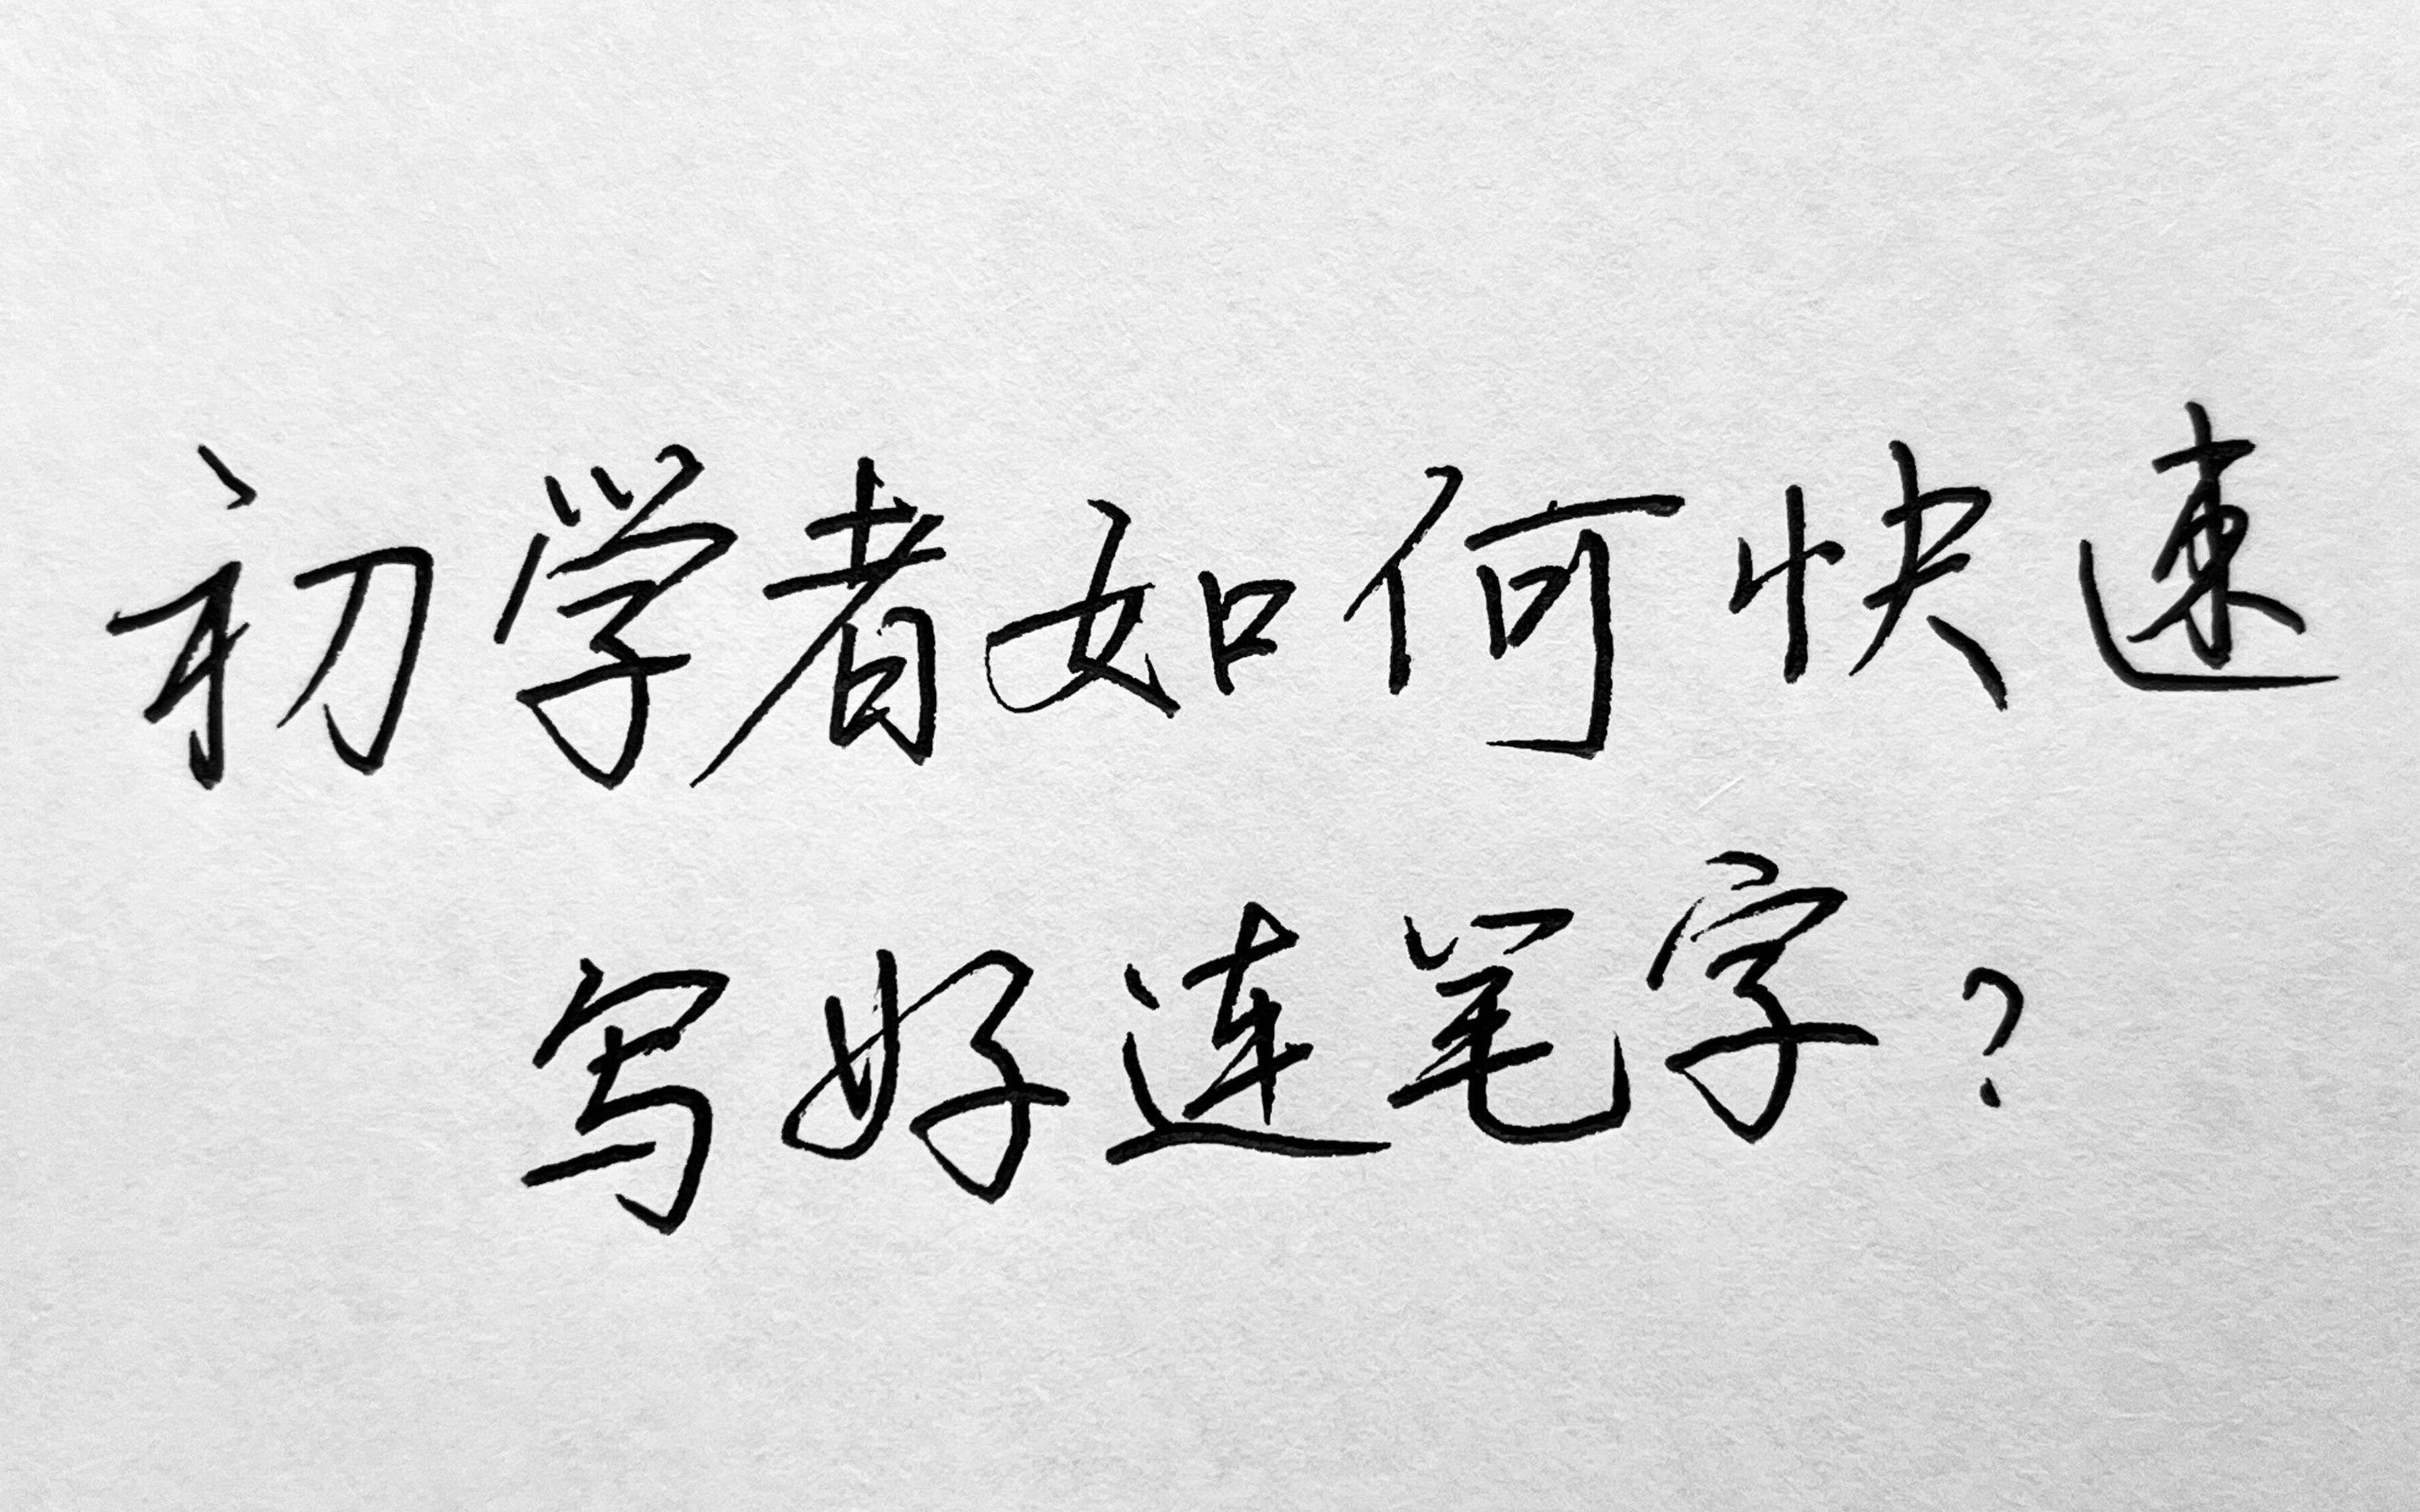 初学者如何快速
写好连笔字?